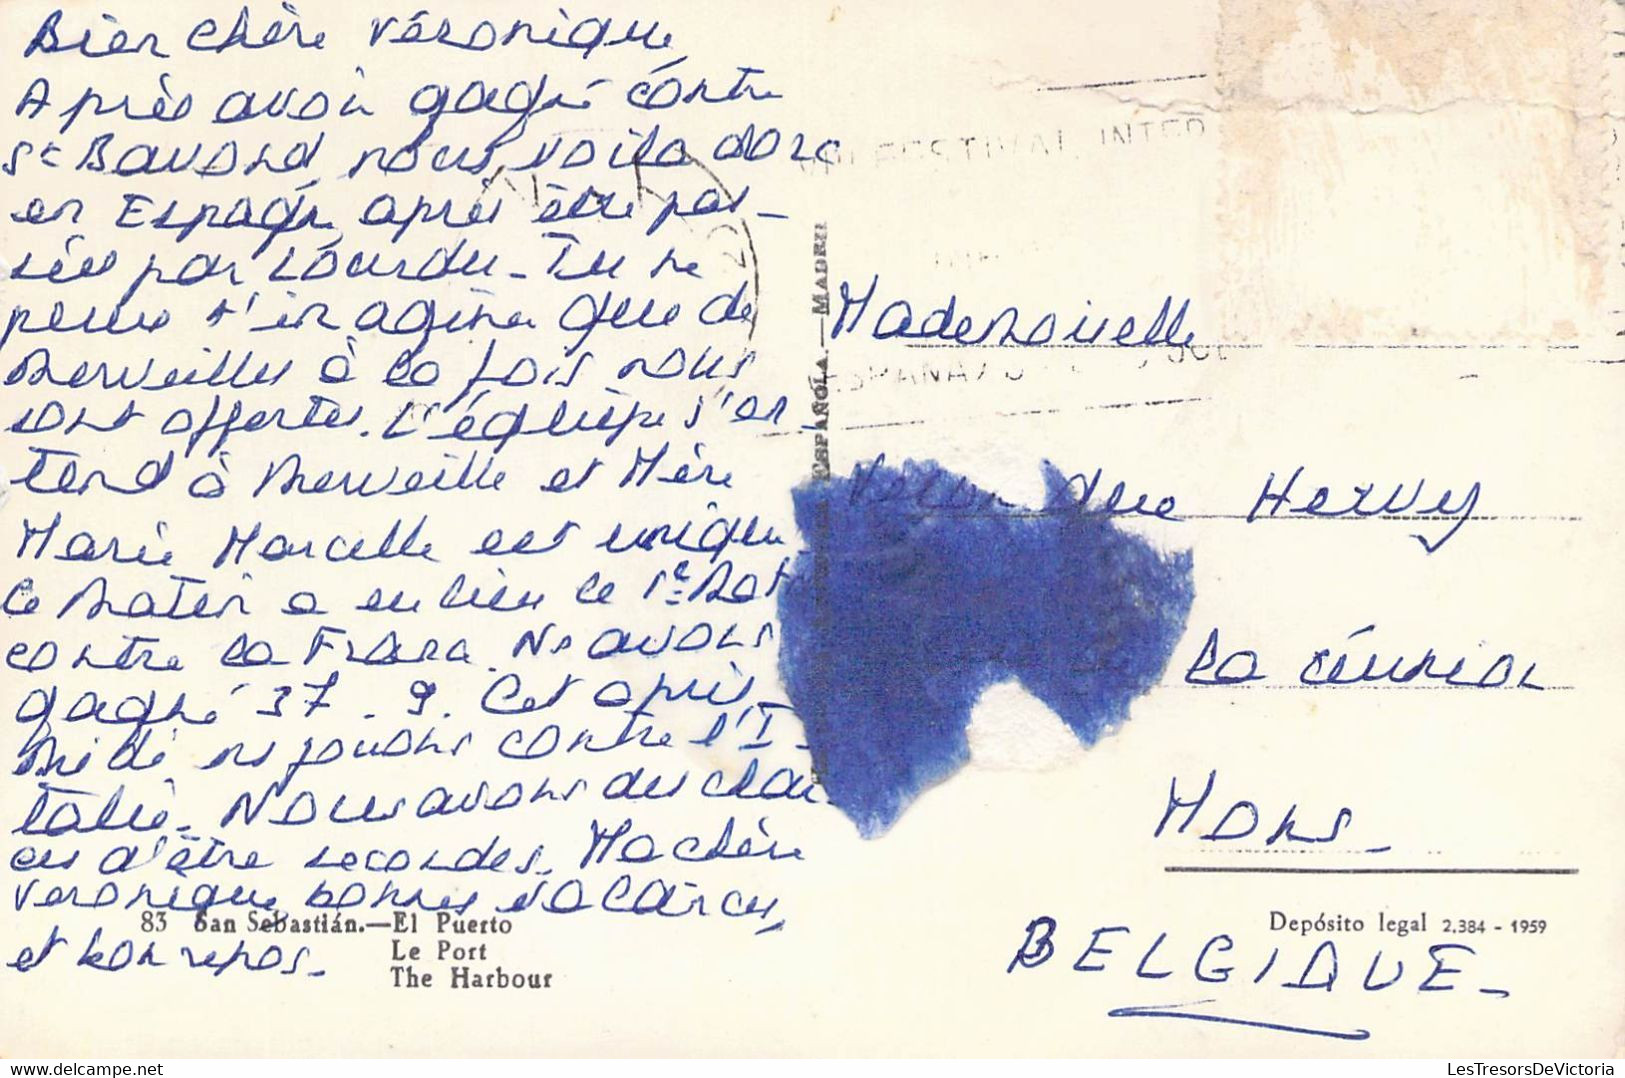 Bien chère Véronique
Après avoir gagné contre
St Bavond nous voila donc
en Espagne après être pas-
sées par Lourdes - Tu ne
peux t'imaginer que de
merveilles à la fois nous
sont offertes. L'équipe s'en-
tend à merveille et Mère
Marie Marcelle est unique
Ce matin a eu lieu le 1er Mat
contre la France. Ns avons
gagné 37 - 9. Cet après-
midi ns jouons contre l'I-
talie. Nous avons des chan-
ces d'être secondes. Ma chère
Véronique bonnes vacances,
et bon repos.
83 San Sebastián.—El Puerto
Le Port
The Harbour
ESPAÑOLA.—MADRID
FESTIVAL INTER
ESPAÑA
Mademoiselle
Véronique Hervy
Mons-
BELGIQUE-
Depósito legal 2.384 - 1959
LesTresorsDeVictoria